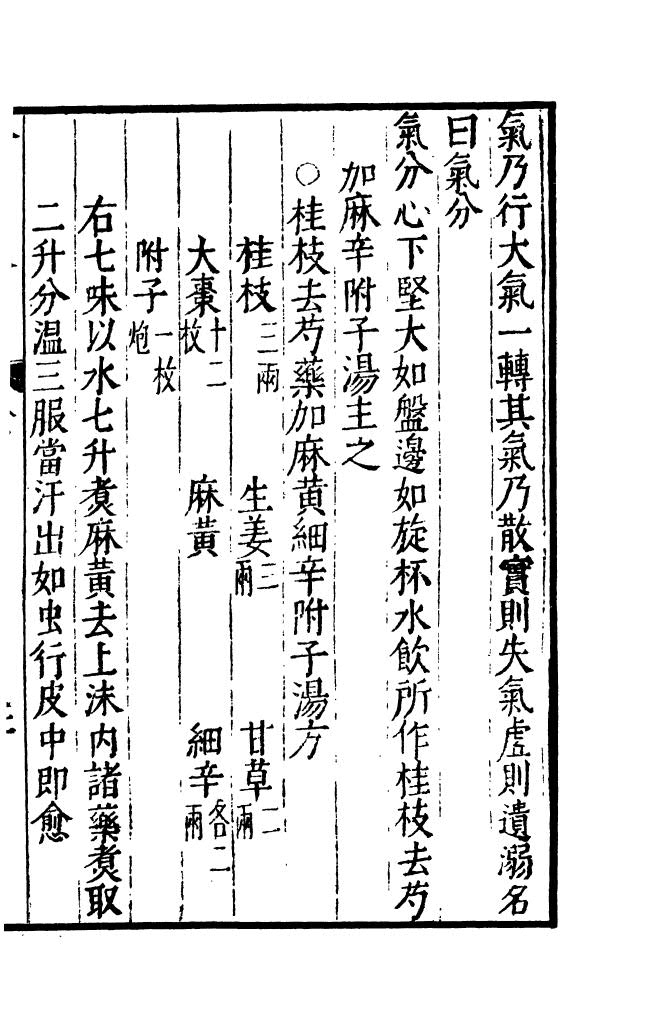 氣乃行大氣一轉其氣乃散實則失氣虛則遺溺名
曰氣分
氣分心下堅大如盤邊如旋杯水飲所作桂枝去芍
加麻辛附子湯主之
○桂枝去芍藥加麻黃細辛附子湯方
桂枝三兩 生姜三兩 甘草二兩
大棗十二枚 麻黃 細辛各二兩
附子一枚炮
右七味以水七升煑麻黃去上沫内諸藥煑取
二升分温三服當汗出如虫行皮中即愈